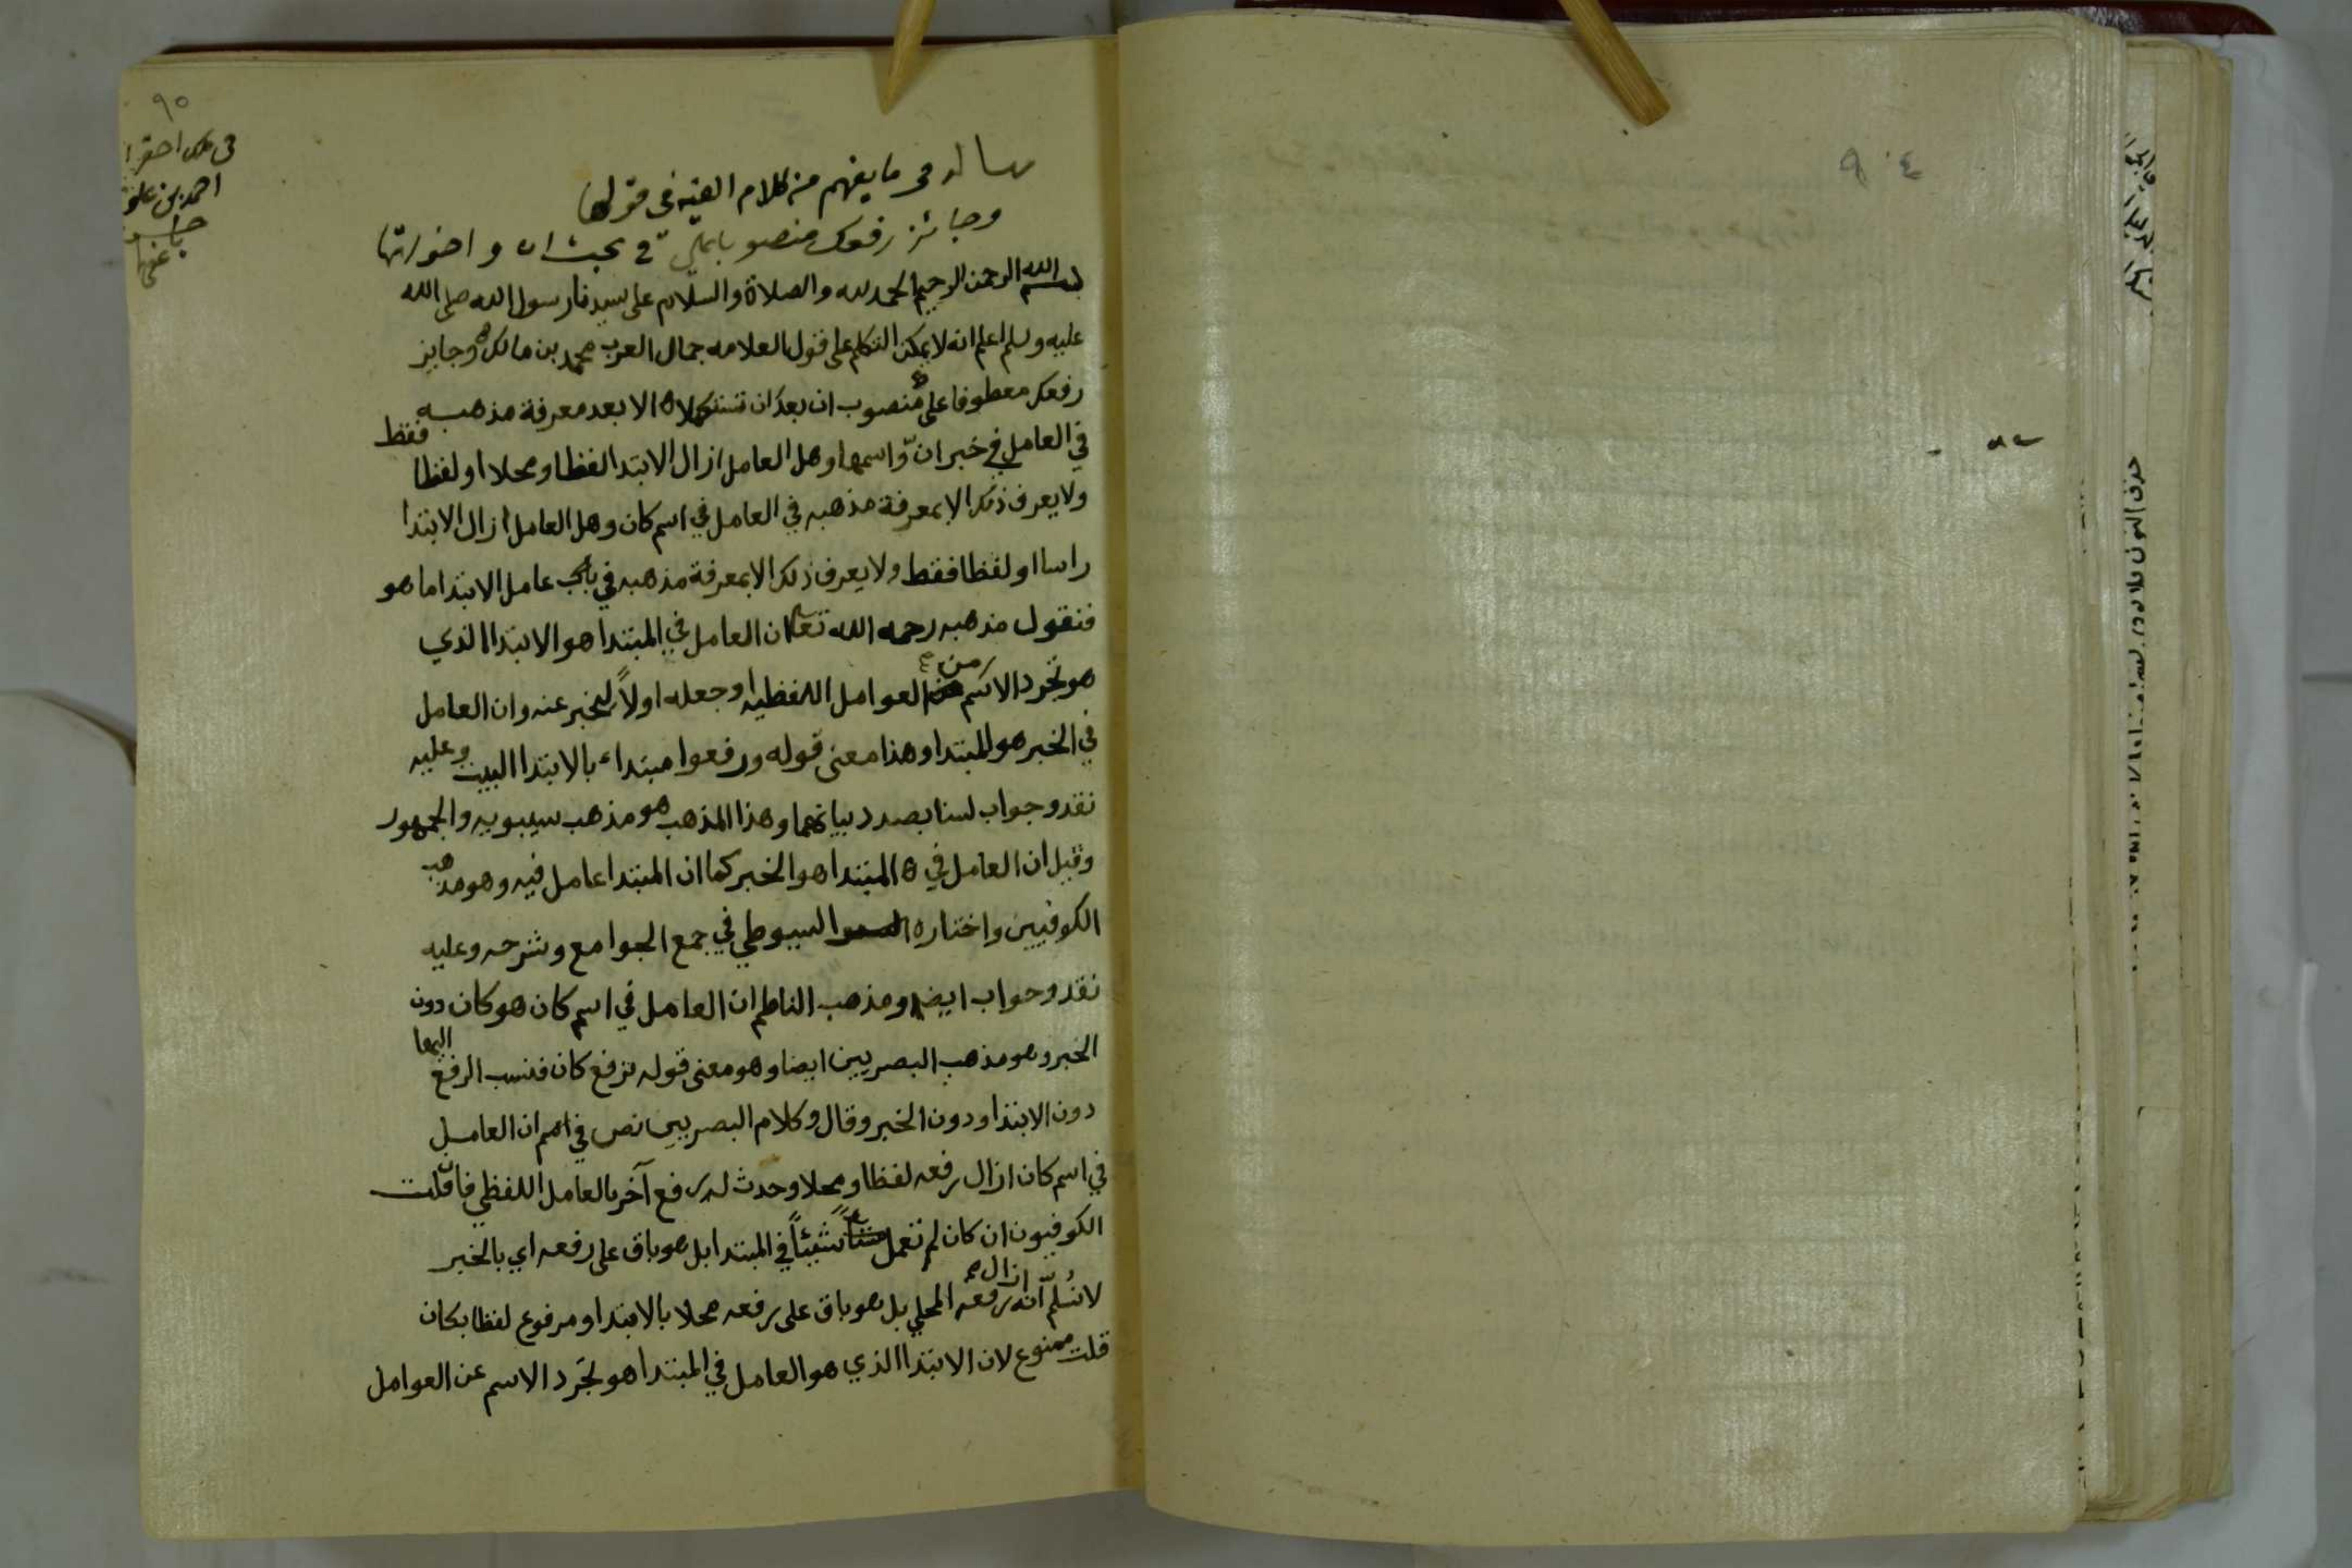 ٩٥
في ملك احقر
احمد بن علي
باحسن
عفي
رسالة في ما يفهم من كلام الفيه في قولها
وجائز رفعك منصوبا على في بحث ان واخواتها
بسم الله الرحمن الرحيم الحمد لله والصلاة والسلام على سيدنا رسول الله صلى الله
عليه وسلم اعلم انه لا يمكن التكلم على قول العلامه جمال العرب محمد بن مالك وجايز
رفعك معطوفا على منصوب ان بعد ان تستكملا الا بعد معرفة مذهبه
في العامل في خبر ان واسمها وهل العامل ازال الابتدا لفظا ومحلا او لفظا فقط
ولا يعرف ذلك الا بمعرفة مذهبه في العامل في اسم كان وهل العامل ازال الابتدا
راسا او لفظا فقط ولا يعرف ذلك الا بمعرفة مذهبه في باب عامل الابتدا ما هو
فنقول مذهبه رحمه الله تعالى ان العامل في المبتدا هو الابتدا الذي
هو تجرد الاسم من العوامل اللفظيه وجعله اولاً ليخبر عنه وان العامل
في الخبر هو المبتدا وهذا معنى قوله ورفعوا مبتداء بالابتدا البيت وعليه
نقد وجواب لسنا بصدد بيانهما وهذا المذهب هو مذهب سيبويه والجمهور
وقيل ان العامل في المبتدا هو الخبر كما ان المبتدا عامل فيه وهو مذهب
الكوفيين واختاره السيوطي في جمع الجوامع وشرحه وعليه
نقد وجواب ايضا ومذهب الناظم ان العامل في اسم كان هو كان دون
الخبر وهو مذهب البصريين ايضا وهو معنى قوله ترفع كان فنسب الرفع اليها
دون الابتدا ودون الخبر وقال وكلام البصريين نص في اهم ان العامل
في اسم كان ازال رفعه لفظا ومحلا وحدث له رفع آخر بالعامل اللفظي فان قلت
الكوفيون ان كان لم تعمل شيئاً في المبتدا بل هو باق على رفعه اي بالخبر
لا نسلم انه ازال رفعه المحلي بل هو باق على رفعه محلا بالابتدا ومرفوع لفظا بكان
قلت ممنوع لان الابتدا الذي هو العامل في المبتدا هو تجرد الاسم عن العوامل